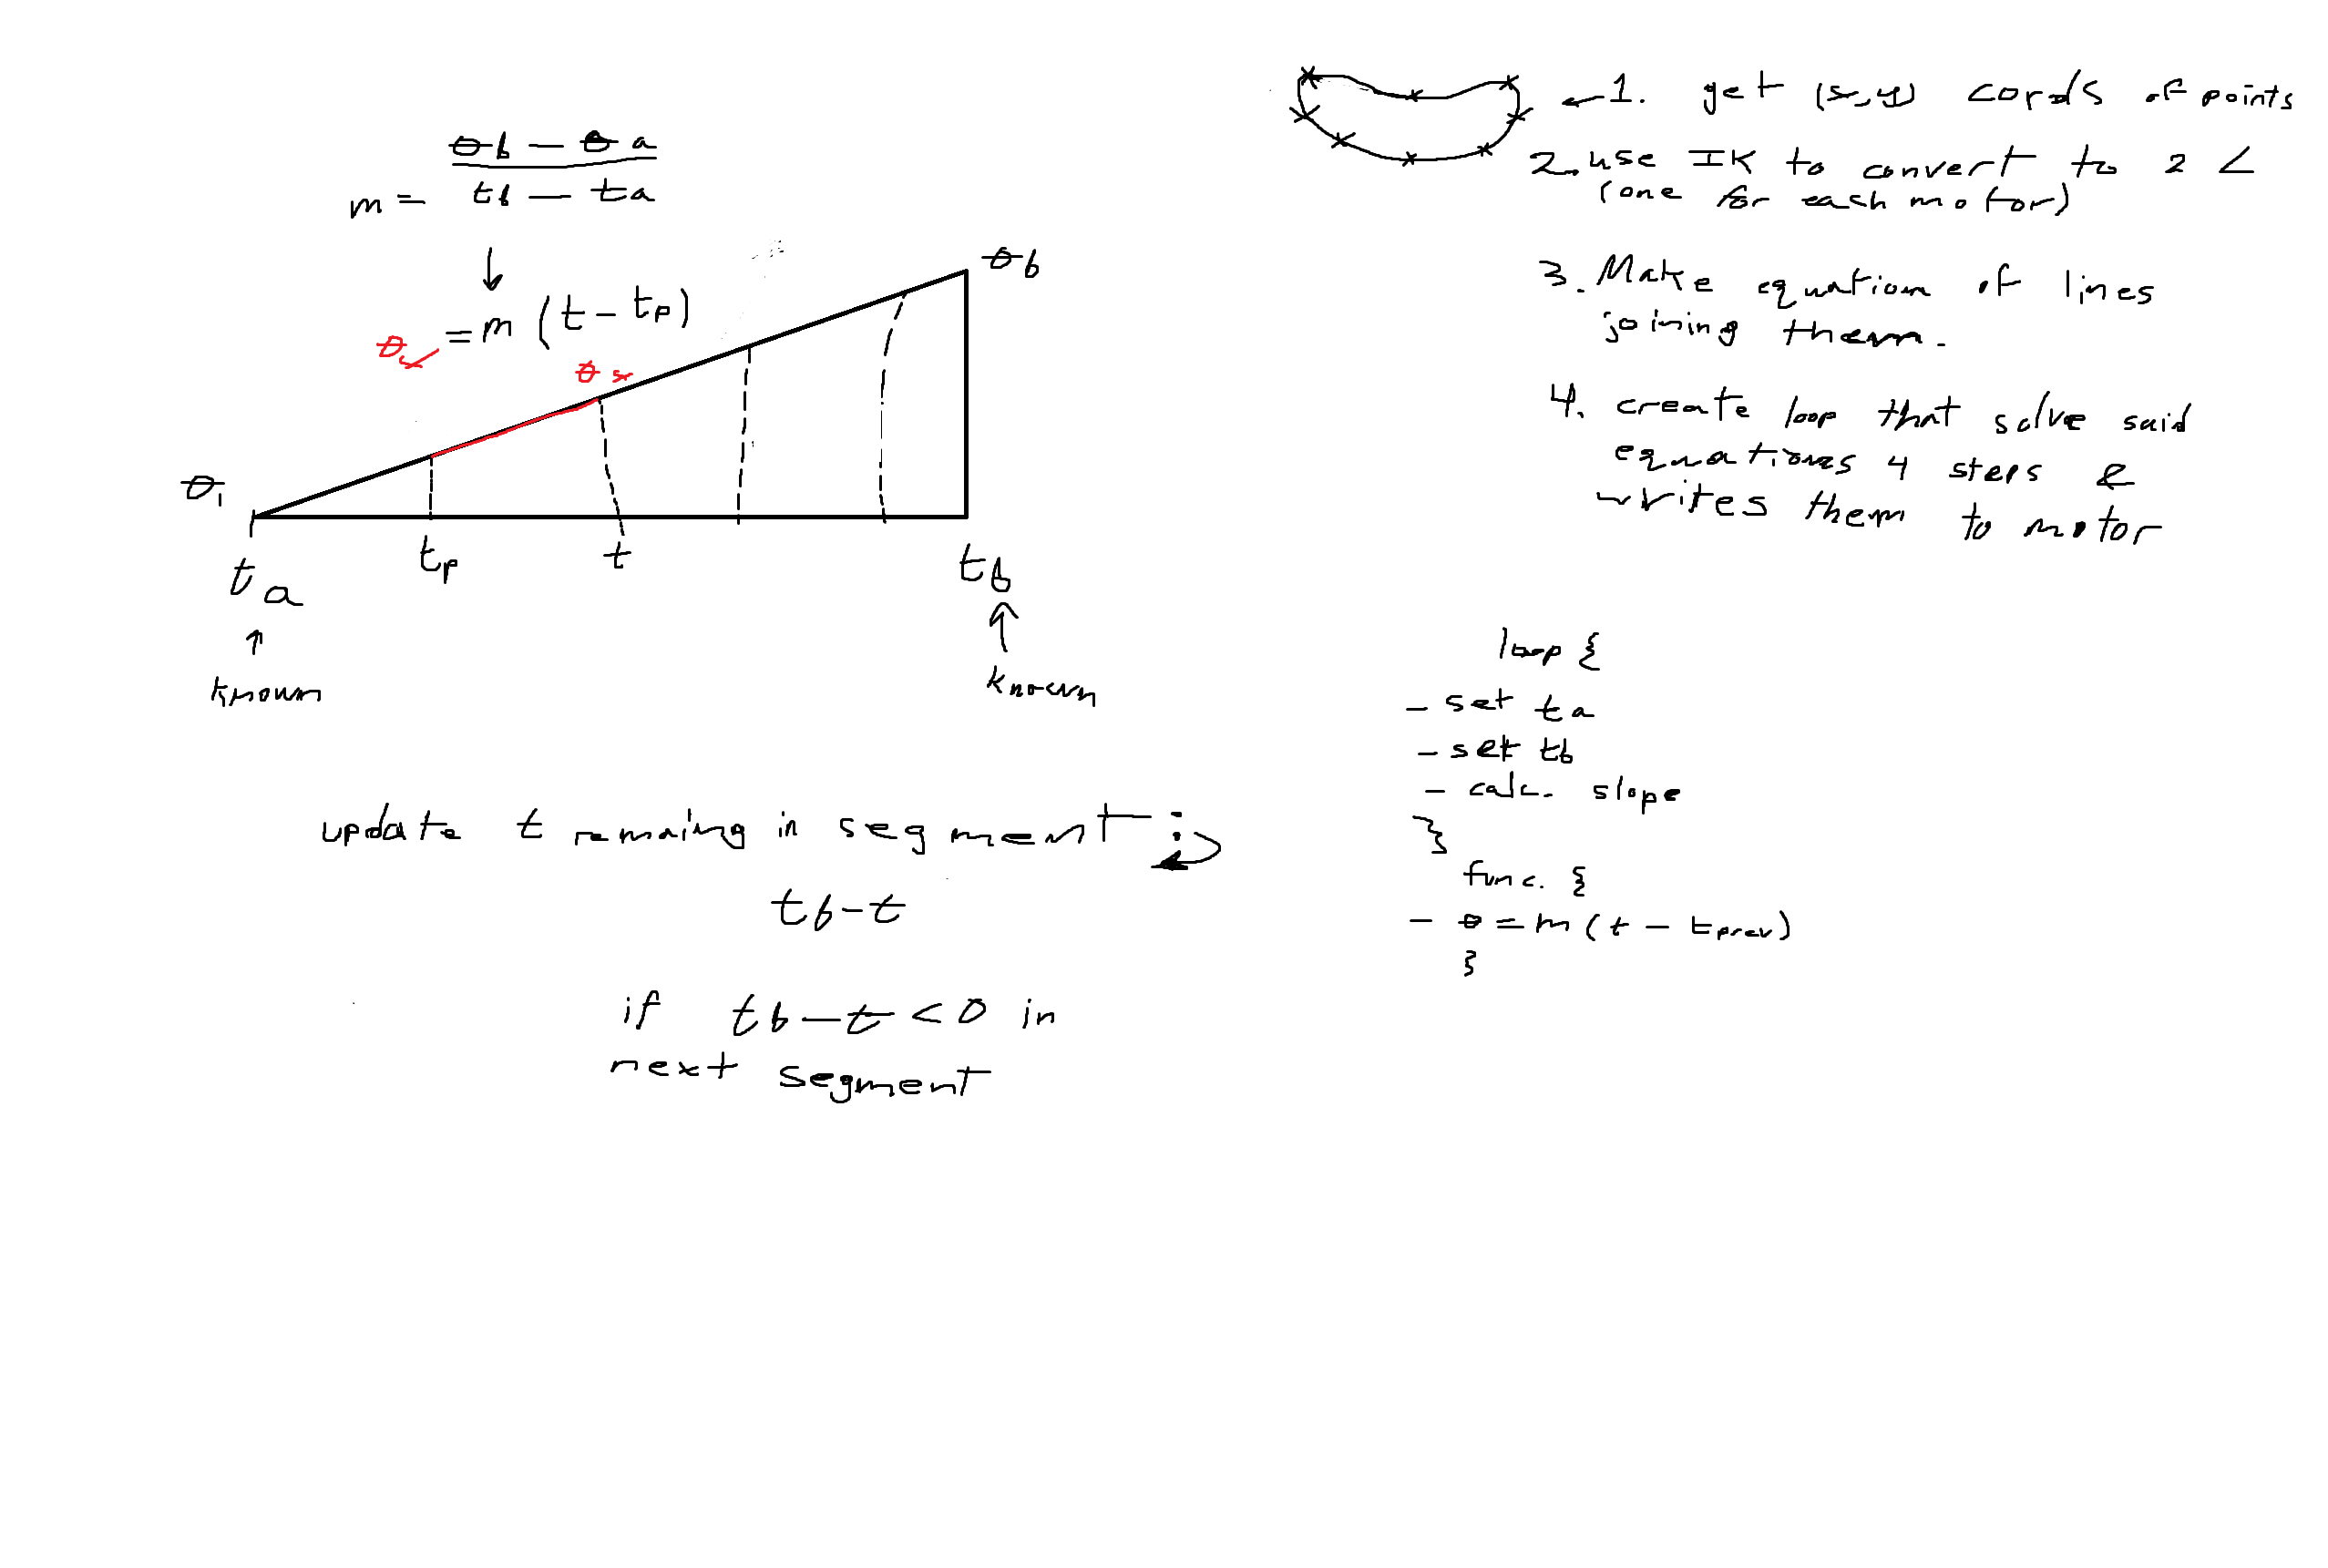 m = θb - θa / tb - ta
θx = m (t - tp)
θx
θb
θ1
ta
tp
t
tb
known
known
update t remaing in segment :
tb - t
if tb - t < 0 in
next segment
1. get (x,y) cords of points
2. use IK to convert to 2 ∠
(one for each motor)
3. Make equation of lines
joining them.
4. create loop that solve said
equations 4 steps &
writes them to motor
loop {
- set ta
- set tb
- calc. slope
}
func. {
- θ = m (t - tprev)
}